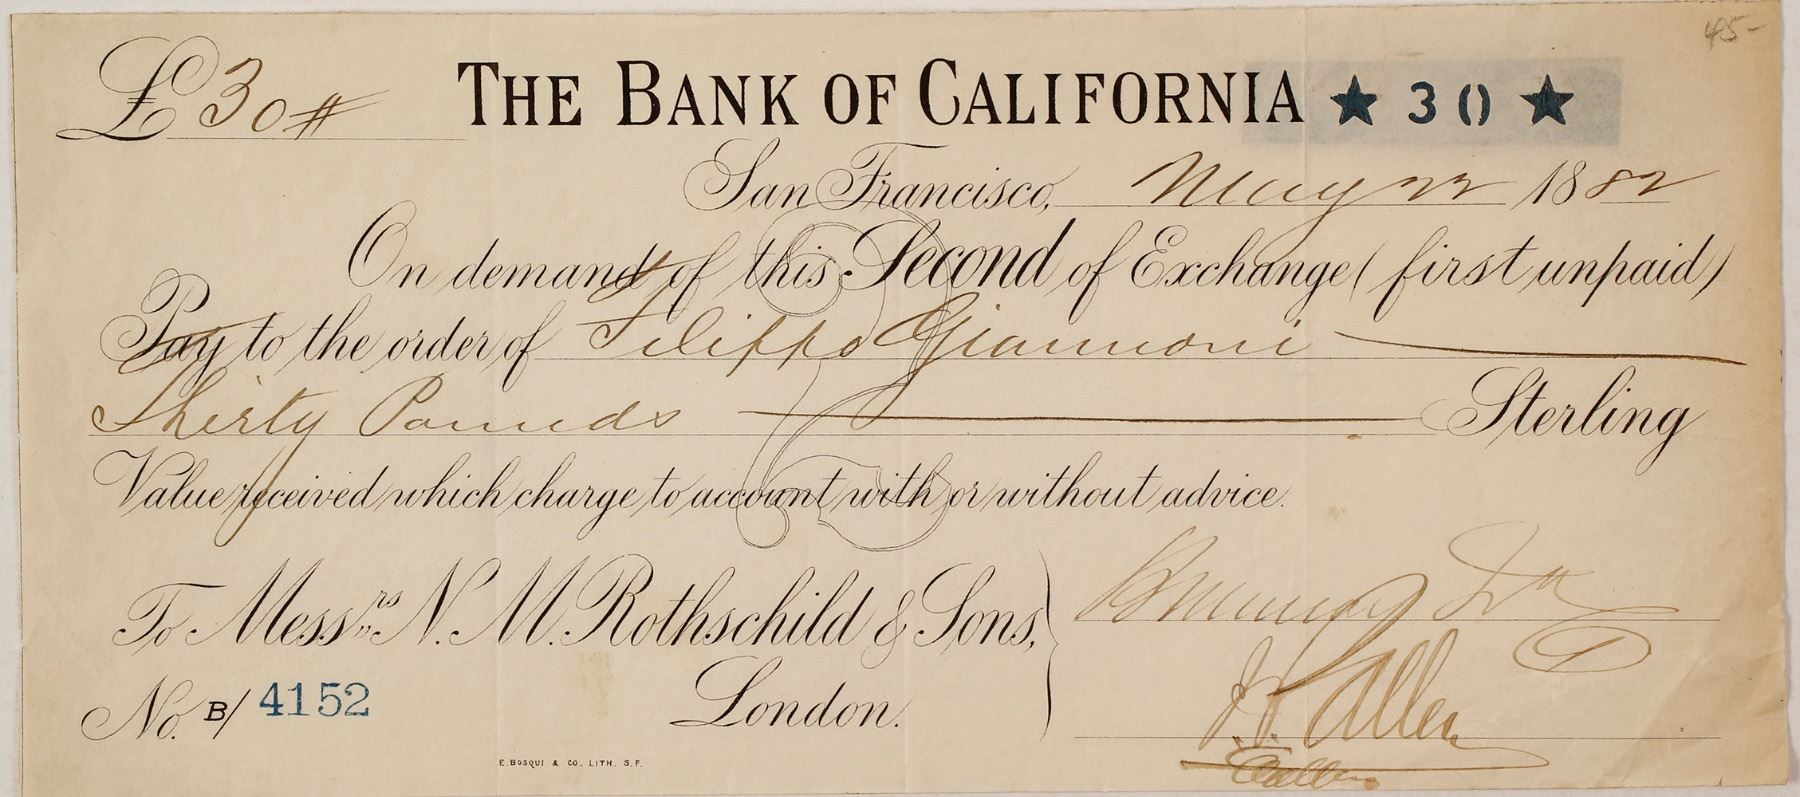 45-
£ 30# THE BANK OF CALIFORNIA ★ 30 ★
San Francisco, May 22 1882
On demand of this Second of Exchange (first unpaid)
Pay to the order of Filippo Giannoni
Thirty Pounds Sterling
Value received which charge to account with or without advice.
To Messrs N. M. Rothschild & Sons,
London.
No. B/ 4152
Allen
E. BOSQUI & CO. LITH. S.F.